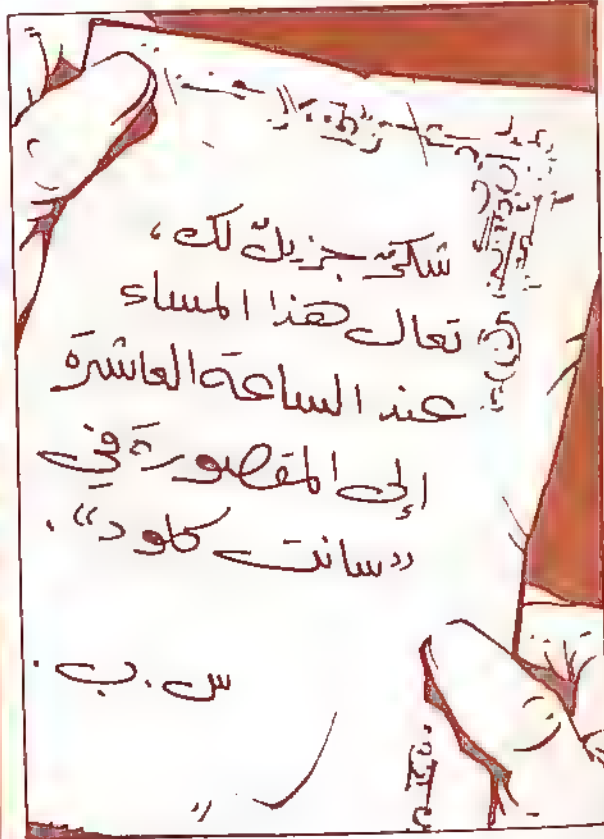 شكرٌ جزيلٌ لك،
تعال هذا المساء
عند الساعة العاشرة
إلى المقصورة في
«سانت كلود».
س.ب.